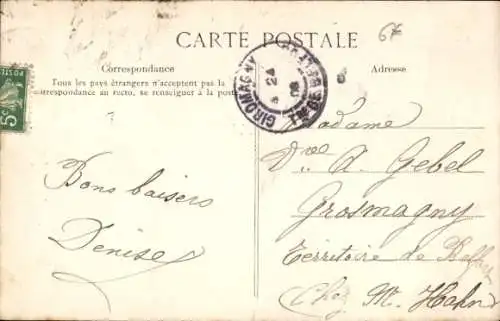 CARTE POSTALE
6F
Correspondance
Adresse
Tous les pays étrangers n'acceptent pas la
correspondance au recto, se renseigner à la poste
5
POSTES
GIROMAGNY
24
08
Madame
Dve A. Gebel
Grosmagny
Territoire de Belfort
Chez M. Hahn
Bons baisers
Denise